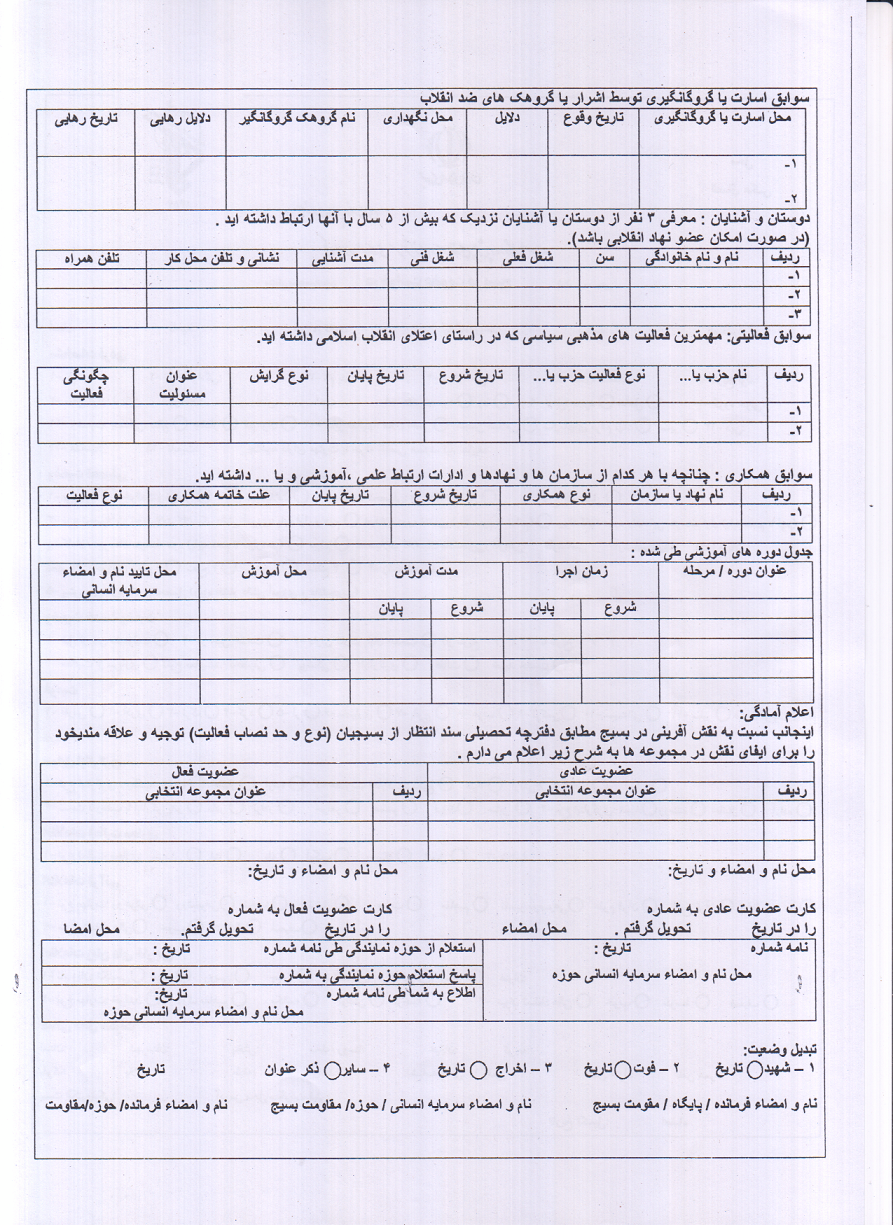 سوابق اسارت یا گروگانگیری توسط اشرار یا گروهک های ضد انقلاب
محل اسارت یا گروگانگیری تاریخ وقوع دلایل محل نگهداری نام گروهک گروگانگیر دلایل رهایی تاریخ رهایی
۱-
۲-
دوستان و آشنایان : معرفی ۳ نفر از دوستان یا آشنایان نزدیک که بیش از ۵ سال با آنها ارتباط داشته اید .
(در صورت امکان عضو نهاد انقلابی باشد).
ردیف نام و نام خانوادگی سن شغل فعلی شغل فنی مدت آشنایی نشانی و تلفن محل کار تلفن همراه
۱-
۲-
۳-
سوابق فعالیتی: مهمترین فعالیت های مذهبی سیاسی که در راستای اعتلای انقلاب اسلامی داشته اید.
ردیف نام حزب یا... نوع فعالیت حزب یا... تاریخ شروع تاریخ پایان نوع گرایش عنوان مسئولیت چگونگی فعالیت
۱-
۲-
سوابق همکاری : چنانچه با هر کدام از سازمان ها و نهادها و ادارات ارتباط علمی ،آموزشی و یا ... داشته اید.
ردیف نام نهاد یا سازمان نوع همکاری تاریخ شروع تاریخ پایان علت خاتمه همکاری نوع فعالیت
۱-
۲-
جدول دوره های آموزشی طی شده :
عنوان دوره / مرحله زمان اجرا مدت آموزش محل آموزش محل تایید نام و امضاء سرمایه انسانی
شروع پایان شروع پایان
اعلام آمادگی:
اینجانب نسبت به نقش آفرینی در بسیج مطابق دفترچه تحصیلی سند انتظار از بسیجیان (نوع و حد نصاب فعالیت) توجیه و علاقه مندیخود
را برای ایفای نقش در مجموعه ها به شرح زیر اعلام می دارم .
عضویت عادی عضویت فعال
ردیف عنوان مجموعه انتخابی ردیف عنوان مجموعه انتخابی
محل نام و امضاء و تاریخ: محل نام و امضاء و تاریخ:
کارت عضویت عادی به شماره کارت عضویت فعال به شماره
را در تاریخ تحویل گرفتم . محل امضاء را در تاریخ تحویل گرفتم. محل امضا
نامه شماره تاریخ : استعلام از حوزه نمایندگی طی نامه شماره تاریخ :
محل نام و امضاء سرمایه انسانی حوزه پاسخ استعلام حوزه نمایندگی به شماره تاریخ :
اطلاع به شما طی نامه شماره تاریخ:
محل نام و امضاء سرمایه انسانی حوزه
تبدیل وضعیت:
۱ – شهید تاریخ ۲ – فوت تاریخ ۳ – اخراج تاریخ ۴ – سایر ذکر عنوان تاریخ
نام و امضاء فرمانده / پایگاه / مقومت بسیج نام و امضاء سرمایه انسانی / حوزه/ مقاومت بسیج نام و امضاء فرمانده/ حوزه/مقاومت